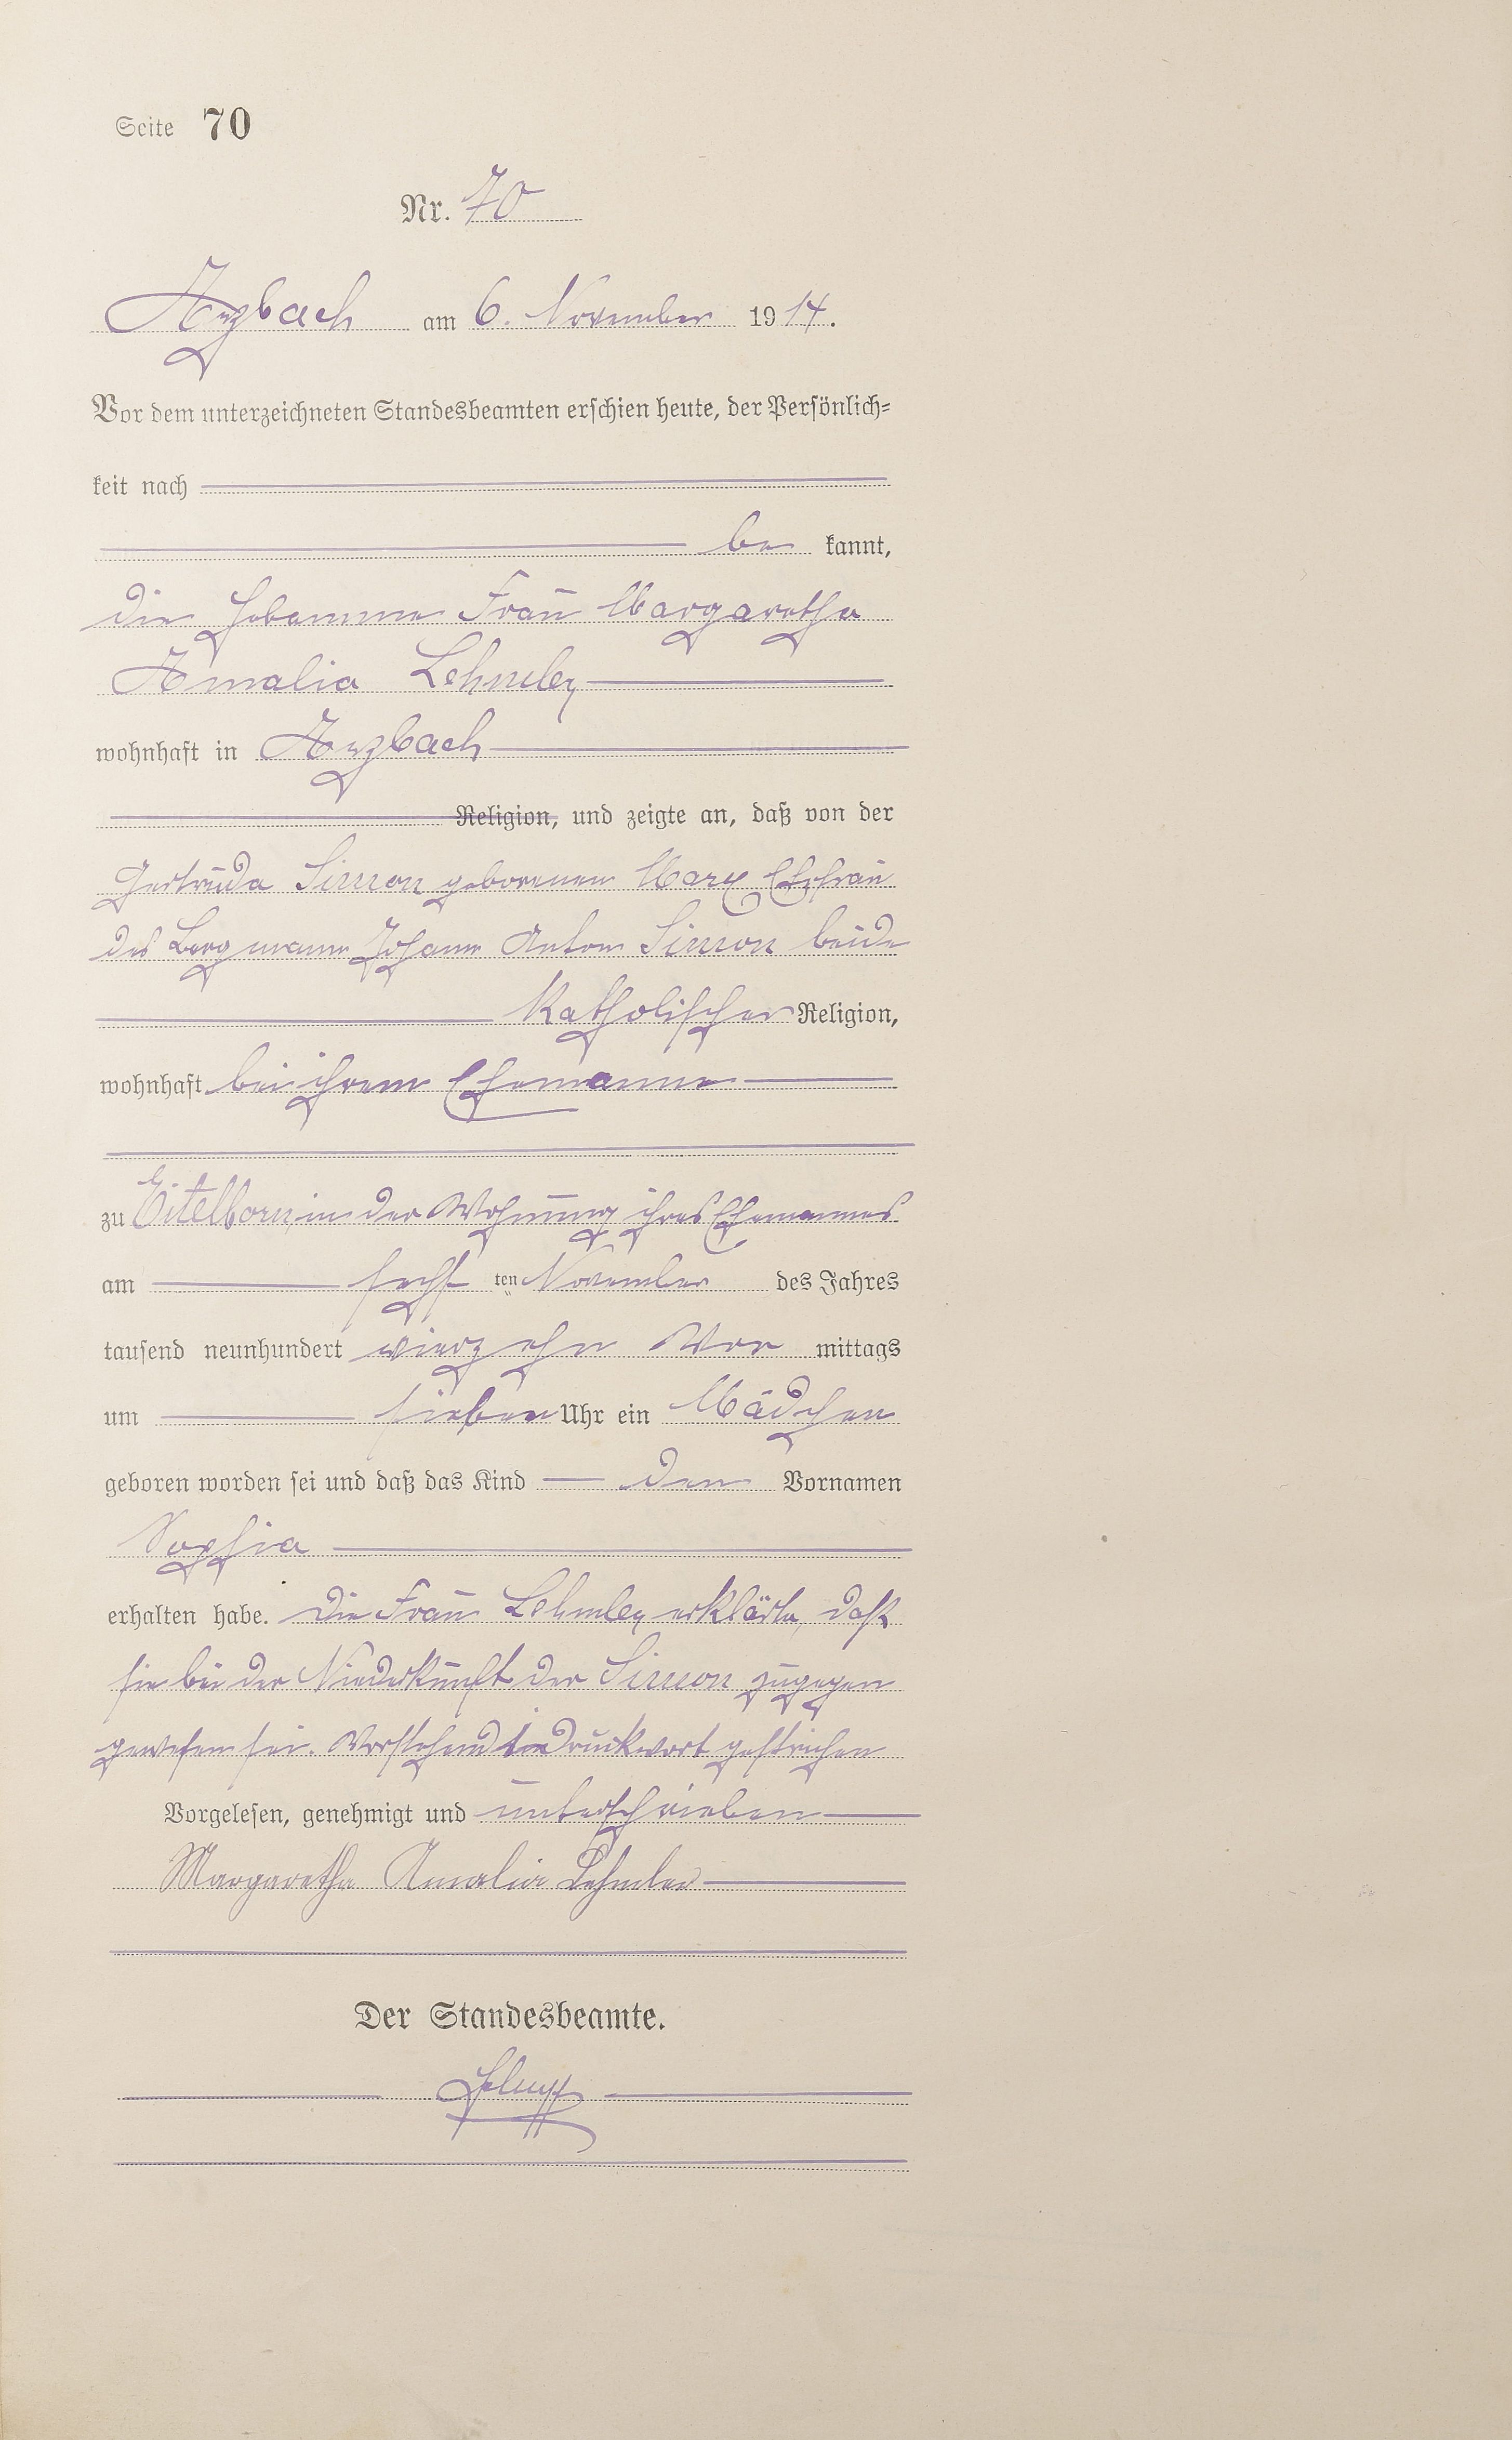 Seite 70
Nr. 70
Arzbach am 6. November 1914.
Vor dem unterzeichneten Standesbeamten erschien heute, der Persönlich=
keit nach
be kannt,
die Hebamme Frau Margaretha
Amalia Lehmler
wohnhaft in Arzbach
Religion, und zeigte an, daß von der
Gertruda Simon geborenen Marx Ehefrau
des Bergmann Johann Anton Simon beide
Katholischer Religion,
wohnhaft bei ihrem Ehemanne
zu Eitelborn, in der Wohnung ihres Ehemannes
am sechsten November des Jahres
tausend neunhundert vierzehn Vor mittags
um sieben Uhr ein Mädchen
geboren worden sei und daß das Kind den Vornamen
Sophia
erhalten habe. Die Frau Lehmler erklärte, daß
sie bei der Niederkunft der Simon zugegen
gewesen sei. Vorstehend Druckwort gestrichen
Vorgelesen, genehmigt und unterschrieben
Margaretha Amalia Lehmler
Der Standesbeamte.